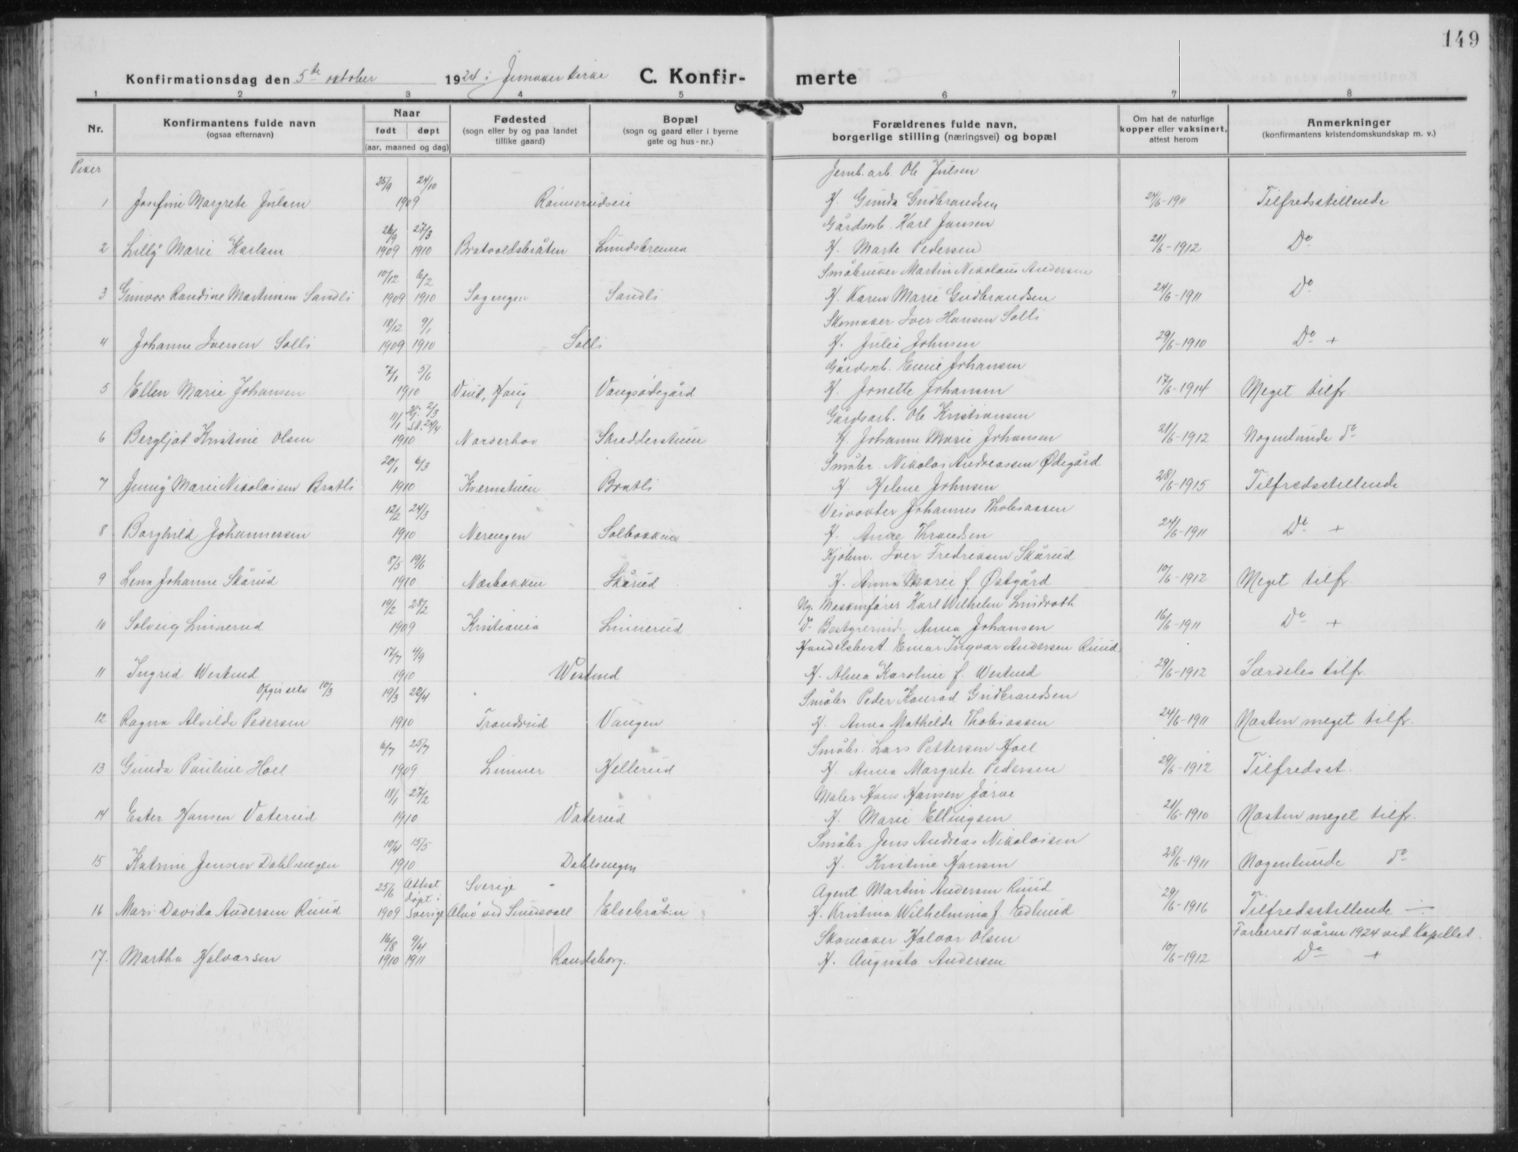 149
Konfirmationsdag den 5te oktober 1924 i Jevnaker kirke C. Konfir- merte
1 2 3 4 5 6 7 8
Nr. Konfirmantens fulde navn (ogsaa efternavn) Naar født døpt (aar, maaned og dag) Fødested (sogn eller by og paa landet tillike gaard) Bopæl (sogn og gaard eller i byerne gate og hus-nr.) Forældrenes fulde navn, borgerlige stilling (næringsvei) og bopæl Om hat de naturlige kopper eller vaksinert, attest herom Anmerkninger (konfirmantens kristendomskundskap m. v.)
Piker
25/9 24/10 Jernb.arb. Ole Julsen
1 Josefine Margrete Julsen 1909 H. Gunda Gudbrandsen 24/6-1911 Tilfredsstillende
26/9 27/3 Gårdarb. Karl Jansen
2 Lilly Marie Karlsen 1909 1910 Bratvoldsbråten H. Marte Pedersen 21/6-1912 Do
10/12 6/2 Småbruker Martin Nikolaus Andersen
3 Gunvor Randine Martinsen Sandli 1909 1910 Sogengen Sandli H. Karen Marie Gudbrandsen 24/6-1911 Do
18/12 9/1 Skomaker Iver Hansen Solli
4 Johanne Iversen Solli 1909 1910 Solli H. Julie Johnsen 29/6-1910 Do +
5/6 Gårdarb. Johansen
5 Ellen Marie Johansen 1910 H. Jonette Johansen 17/6-1914 Meget tilfr.
11/1 Gårdsarb. Ole Kristiansen
6 Bergljot Kristine Olsen 1910 Norderhov H. Johanne Marie Johansen 21/6-1912 Nogenlunde do
20/1 6/3 Småbr. Nikolai Andreassen Ødegård
7 Jenny Marie Nikolaisen Bratli 1910 Kvernstuen Bratli H. Helene Johnsen 28/6-1915 Tilfredsstillende
12/2 24/3 Veivokter Johannes Thobiassen
8 Borghild Johannessen 1910 Nerengen Solbakken H. Anne 24/6-1911 Do +
8/5 19/6 Iver Fredriksen Skårud
9 Lena Johanne Skårud 1910 Næsbakken Skårud H. Anna Marie f. Østgård 10/6-1912 Meget tilfr.
19/2 28/2 Maskinfører Karl Wilhelm Lindroth
10 Solveig Linnerud 1909 Kristiania Linnerud Bestyrerinde Anna Johansen 16/6-1911 Do +
17/7 4/9 Handelsbest. Einar Ingvar Andersen Ruud
11 Ingrid Westrud 1910 Westrud H. Alma Karoline f. Westrud 29/6-1912 Særdeles tilfr.
10/3 19/3 22/4 Småbr. Peder Konrad Gudbrandsen
12 Ragna Alvilde Pedersen 1910 Trandsrud Vangen H. Anna Mathilde Thobiassen 24/6-1911 Næsten meget tilfr.
6/7 25/7 Småbr. Lars Pettersen Hoel
13 Gunda Pauline Hoel 1909 Lunner Hellerud H. Anna Margrete Pedersen 29/6-1912 Tilfredsst.
18/1 27/2 Maler Hans Hansen
14 Ester Hansen Vaterud 1910 Vaterud H. Marie Ellingsen 21/6-1910 Næsten meget tilfr.
10/4 15/5 Småbr. Jens Andreas Nikolaisen
15 Katrine Jensen Dahlsengen 1910 Dahlsengen H. Kristine Hansen 28/6-1911 Nogenlunde do
25/6 Attest Sverige Agent Martin Andersen Ruud
døpt i
16 Mari Davida Andersen Ruud 1909 Sverige Alnö ved Sundsvall H. Kristina Wilhelmina f. Edlund 29/6-1916 Tilfredsstillende
Forberedt våren 1924 ved Kapellet.
16/8 9/4 Skomaker Halvor Olsen
17. Martha Halvorsen 1910 1911 Randsborg. H. Augusta Andersen 10/6-1912 Do +